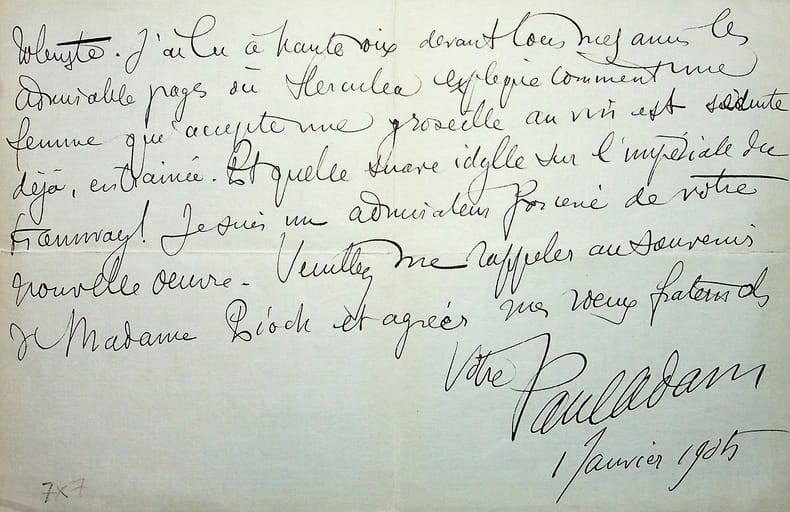 J'ai lu à haute voix devant tous mes amis les
admirable pages où Herculea explique comment une
femme qui accepte une groseille au vin est séduite
déjà, entrainée. Et quelle suave idylle sur l'impériale du
tramway! Je suis un admirateur forcené de votre
nouvelle oeuvre. Veuillez me rappeler au souvenir
de Madame Pioch et agréer mes voeux fraternels
Votre Paul Adam
1 Janvier 1905
7x7